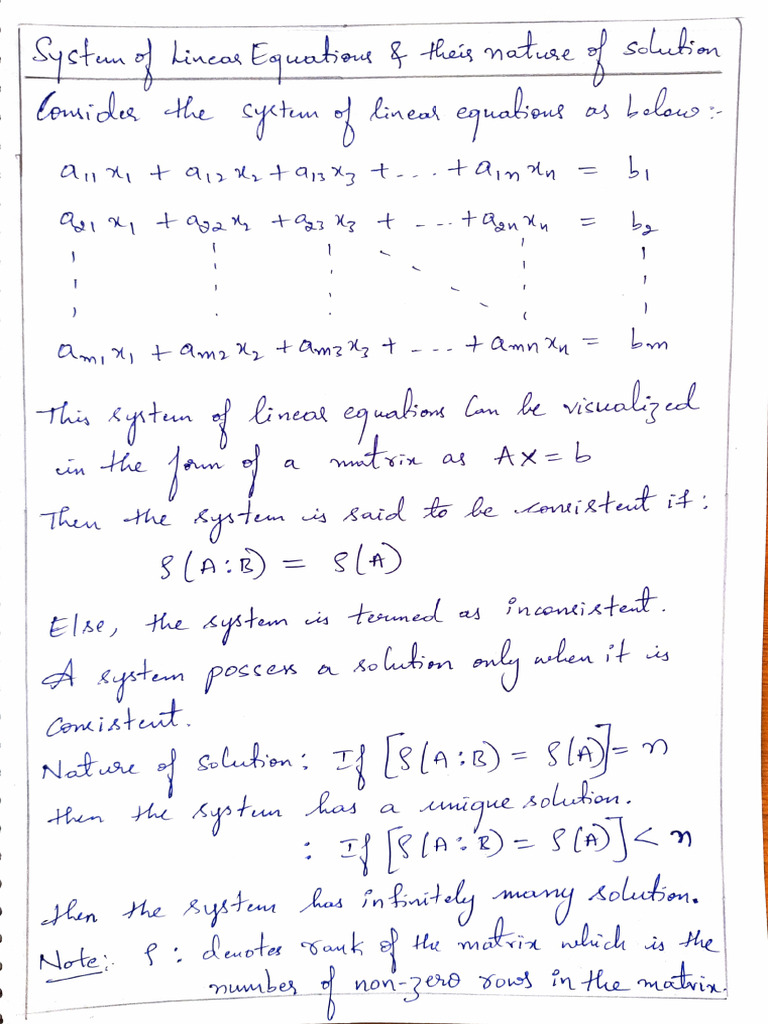 System of Linear Equations & their nature of solution
Consider the system of linear equations as below:-
a11 x1 + a12 x2 + a13 x3 + - - - + a1n xn = b1
a21 x1 + a22 x2 + a23 x3 + - - - + a2n xn = b2
am1 x1 + am2 x2 + am3 x3 + - - - + amn xn = bm
This system of linear equations can be visualized
in the form of a matrix as AX = b
Then the system is said to be consistent if:
ρ(A:B) = ρ(A)
Else, the system is termed as inconsistent.
A system possess a solution only when it is
consistent.
Nature of solution: If [ρ(A:B) = ρ(A)] = n
then the system has a unique solution.
: If [ρ(A:B) = ρ(A)] < n
then the system has infinitely many solution.
Note:- ρ : denotes rank of the matrix which is the
number of non-zero rows in the matrix.